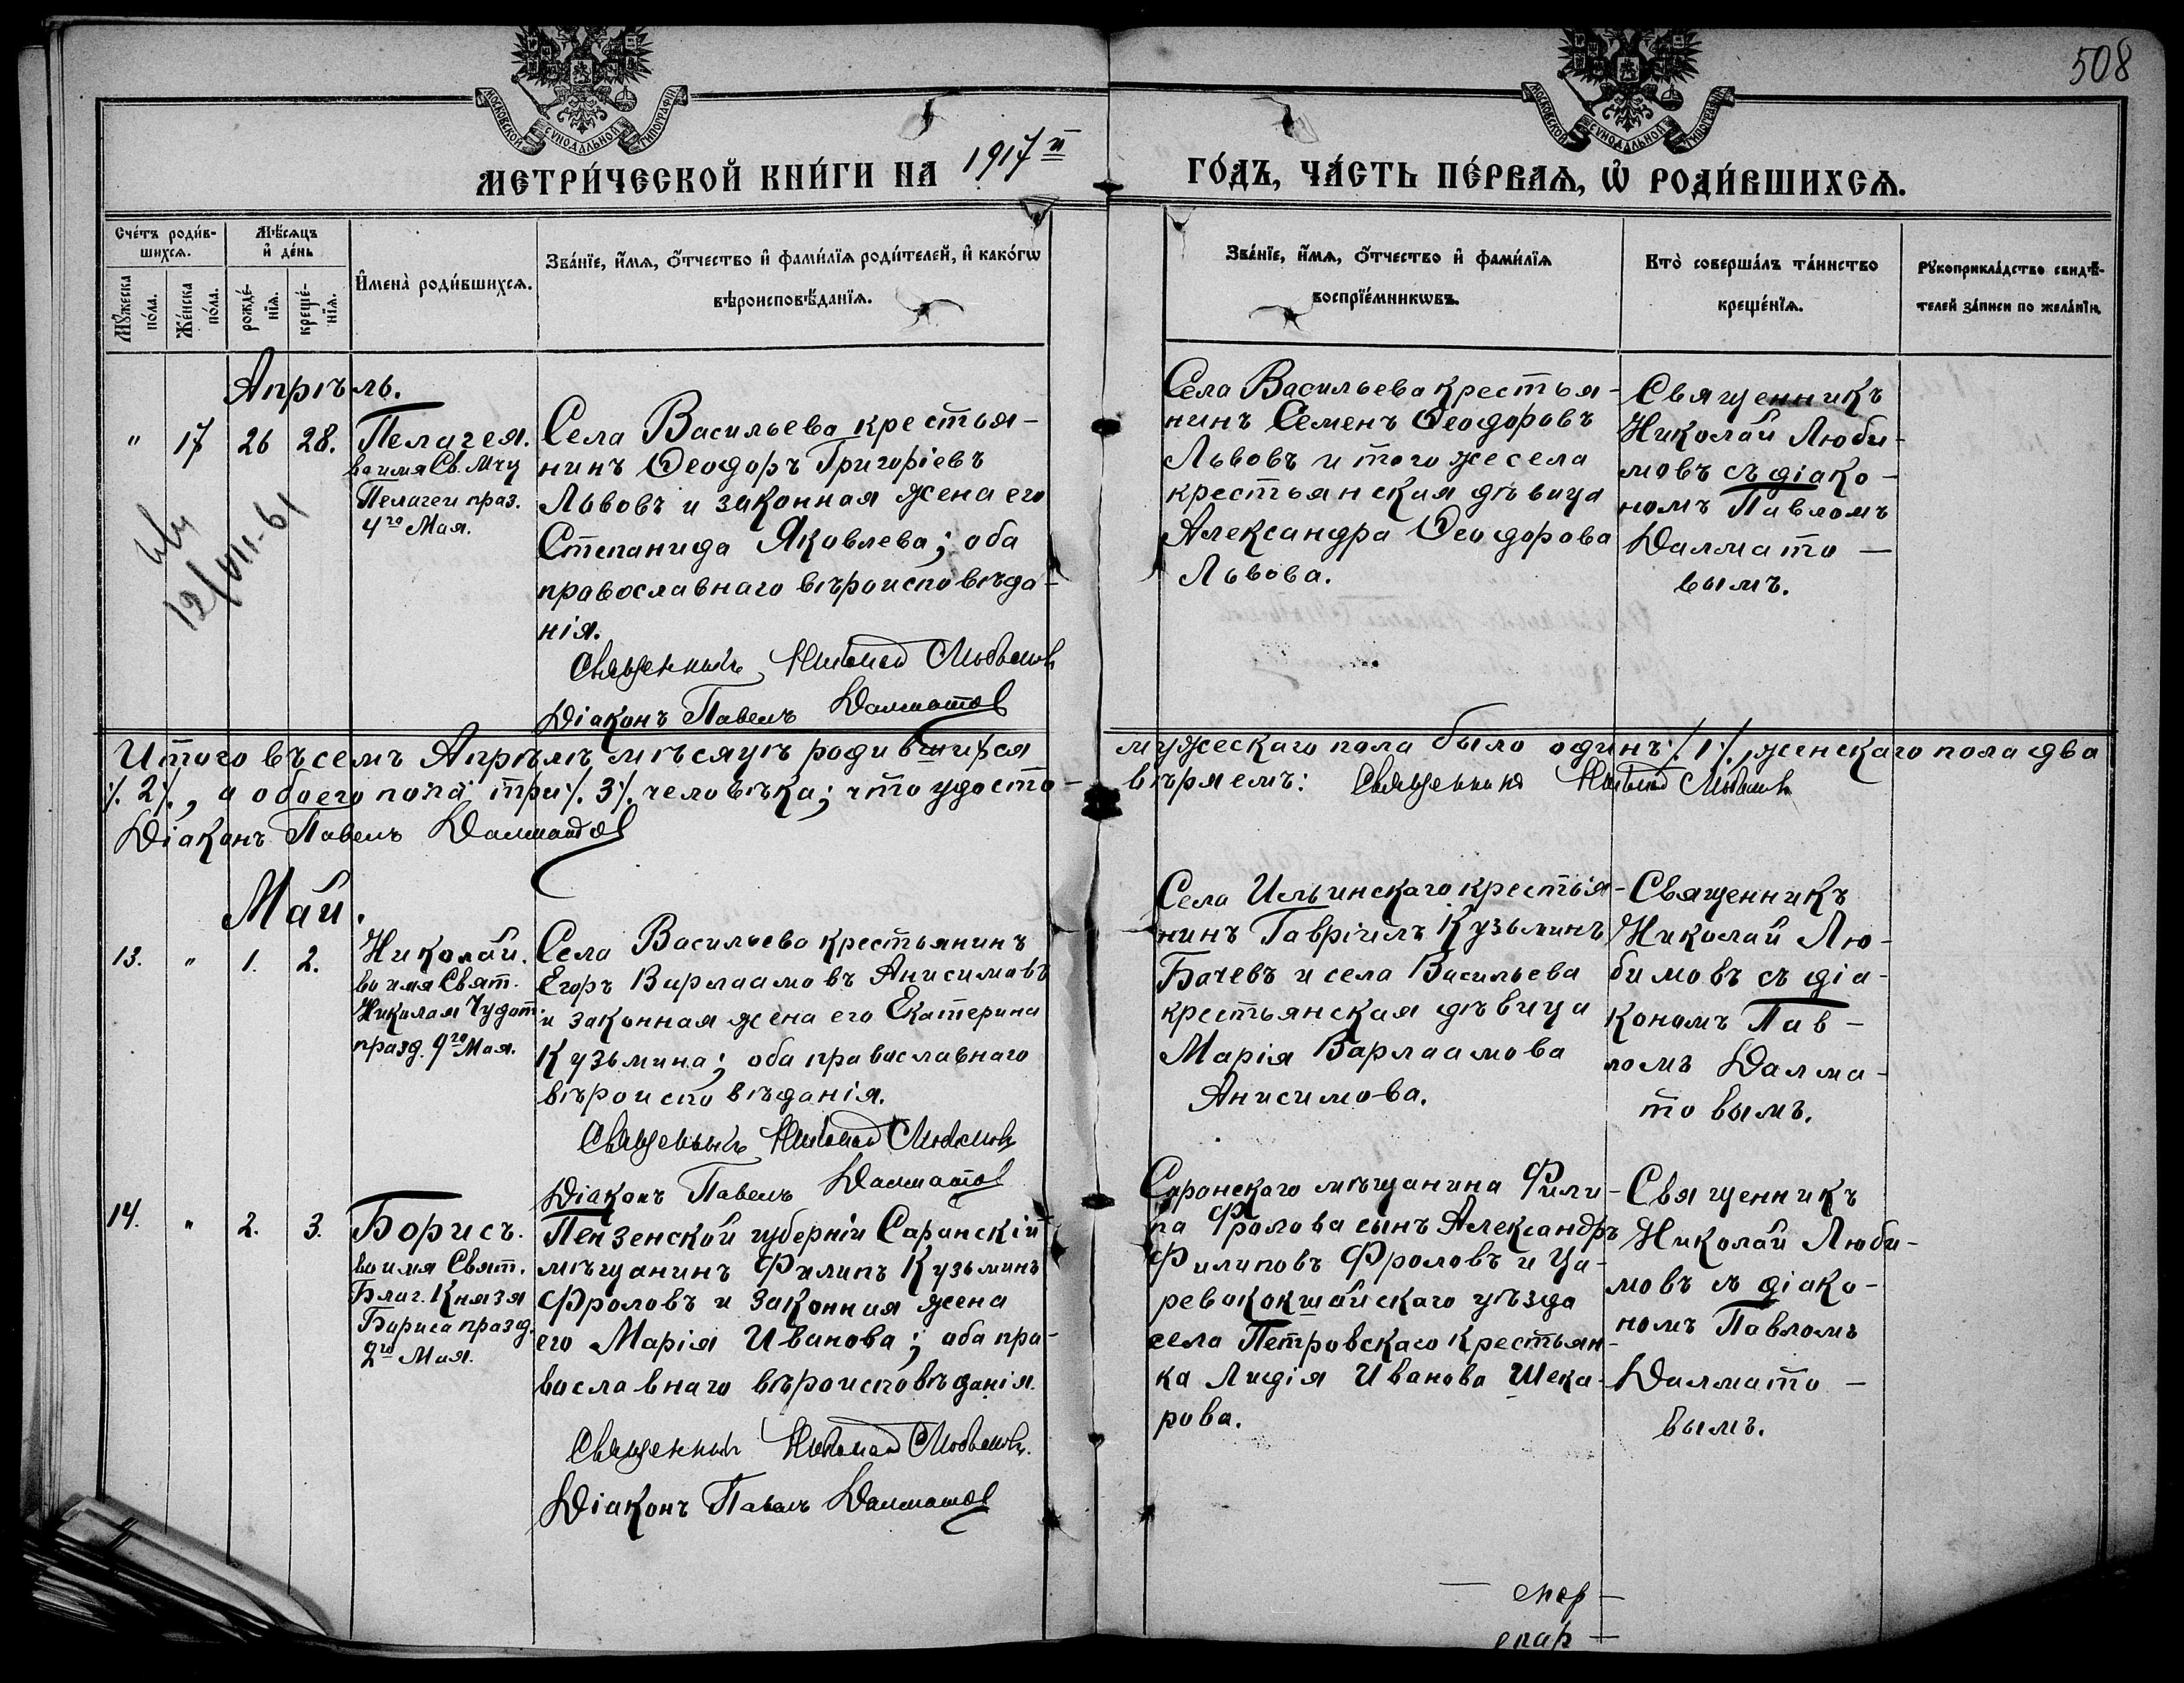 508
МОСКОВСКОЙ СѴНОДАЛЬНОЙ ТИПОГРАФІИ
МОСКОВСКОЙ СѴНОДАЛЬНОЙ ТИПОГРАФІИ
МЕТРИ́ЧЕСКОЙ КНИ́ГИ НА 1917й
ГО́ДЪ, ЧА́СТЬ ПЕ́РВАѦ, Ѡ҆ РОДИ́ВШИХСѦ.
Сче́тъ роди́в-
шихсѧ.
Мꙋ́жеска
по́ла.
Же́нска
по́ла.
Мѣ́сѧцъ
и҆ де́нь
рожде́-
нїѧ.
креще́-
нїѧ.
И҆мена̀ роди́вшихсѧ.
Зва́нїе, и҆́мѧ, ѻ҆́тчество и҆ фами́лїѧ роди́телей, и҆ како́гѡ
вѣроисповѣ́данїѧ.
Зва́нїе, и҆́мѧ, ѻ҆́тчество и҆ фами́лїѧ
воспрїе́мникѡвъ.
Кто̀ соверша́лъ та́инство
креще́нїѧ.
Рꙋкоприкла́дство свидѣ́-
телей за́писи по жела́нїю.
Апрѣль.
" 17 26 28.
Пелагея.
во имя Св. Мчц
Пелагеи праз.
4го Мая.
12/VII-61
Села Васильева крестья-
нинъ Ѳеодоръ Григоріевъ
Львовъ и законная жена его
Степанида Яковлева; оба
православнаго вѣроисповѣда-
нія.
Священникъ Николай Любимовъ
Діаконъ Павелъ Далматовъ
Села Васильева крестья-
нинъ Семенъ Ѳеодоровъ
Львовъ и того же села
крестьянская дѣвица
Александра Ѳеодорова
Львова.
Священникъ
Николай Люби-
мовъ съ діако-
номъ Павломъ
Далмато-
вымъ.
Итого въ семъ Апрѣлѣ мѣсяцѣ родившихся мужескаго пола было одинъ ·/. 1 ·/., женскаго пола два
·/. 2 ·/., а обоего пола три ·/. 3 ·/. человѣка; что удосто-
вѣряемъ: Священникъ Николай Любимовъ
Діаконъ Павелъ Далматовъ
Май.
13. " 1. 2.
Николай.
во имя Свят.
Николая Чудот.
празд. 9го Мая.
Села Васильева крестьянинъ
Егоръ Варлаамовъ Анисимовъ
и законная жена его Екатерина
Кузьмина; оба православнаго
вѣроисповѣданія.
Священникъ Николай Любимовъ
Діаконъ Павелъ Далматовъ
Села Ильинскаго крестья-
нинъ Гавріилъ Кузьминъ
Бачевъ и села Васильева
крестьянская дѣвица
Марія Варлаамова
Анисимова.
Священникъ
Николай Лю-
бимовъ съ діа-
кономъ Пав-
ломъ Далма-
товымъ.
14. " 2. 3.
Борисъ.
во имя Свят.
Благ. Князя
Бориса празд.
2го Мая.
Пензенской губерніи Саранскій
мѣщанинъ Филипъ Кузьминъ
Фроловъ и законная жена
его Марія Иванова; оба пра-
вославнаго вѣроисповѣданія.
Священникъ Николай Любимовъ.
Діаконъ Павелъ Далматовъ
Саранскаго мѣщанина Фили-
па Фролова сынъ Александръ
Филиповъ Фроловъ и Ца-
ревококшайскаго уѣзда
села Петровскаго крестьян-
ка Лидія Иванова Шека-
рова.
Священникъ
Николай Люби-
мовъ съ діако-
номъ Павломъ
Далмато-
вымъ.